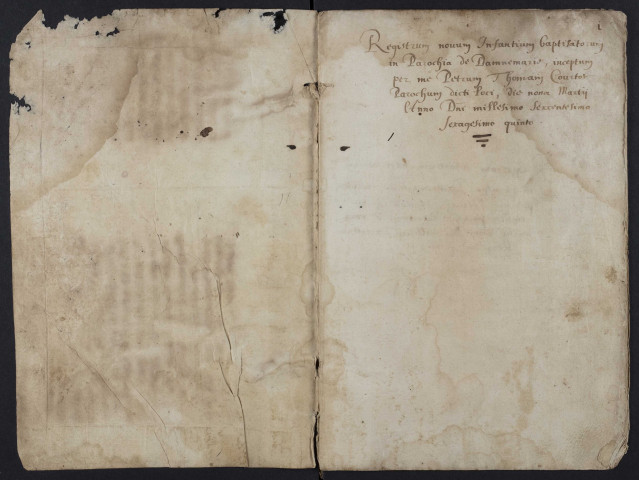 1
Registrum novum Infantium baptisatorum
in Parochia de Damnemarie, inceptum
per me Petrum Thomam Courtot
Parochum dicti loci, die nona Martii
Anno Dni millesimo sexcentesimo
sexagesimo quinto